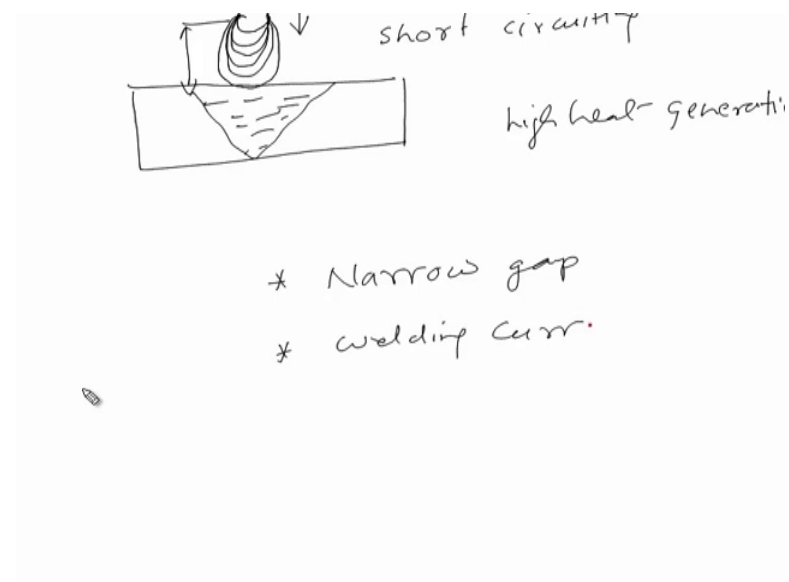 short circuiting
high heat generati
* Narrow gap
* welding curr.